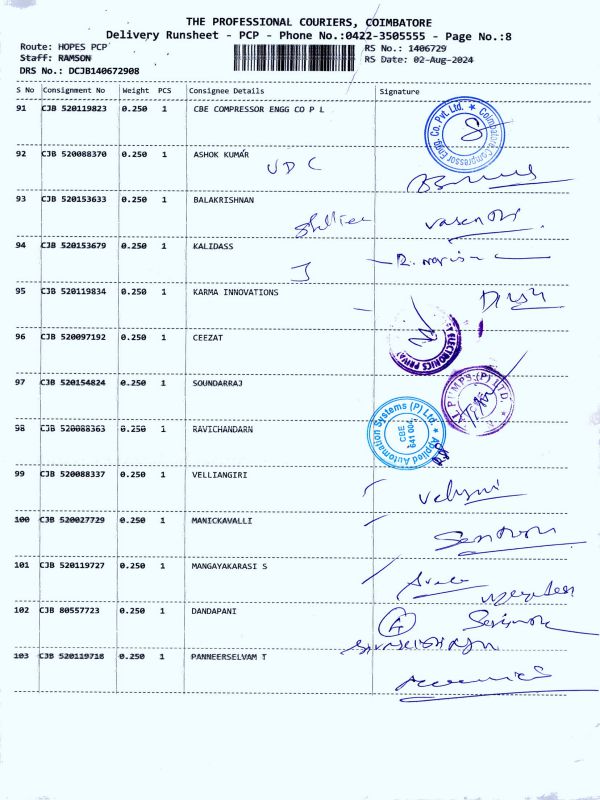 THE PROFESSIONAL COURIERS, COIMBATORE
Delivery Runsheet - PCP - Phone No.:0422-3505555 - Page No.:8
Route: HOPES PCP
RS No.: 1406729
Staff: RAMSON
RS Date: 02-Aug-2024
DRS No.: DCJB140672908
S No Consignment No Weight PCS Consignee Details Signature
91 CJB 520119823 0.250 1 CBE COMPRESSOR ENGG CO P L
Coimbatore Compressor Engg. Co. Pvt. Ltd. ★
92 CJB 520088370 0.250 1 ASHOK KUMAR
UDC
93 CJB 520153633 0.250 1 BALAKRISHNAN
94 CJB 520153679 0.250 1 KALIDASS
95 CJB 520119834 0.250 1 KARMA INNOVATIONS
96 CJB 520097192 0.250 1 CEEZAT
ELECTRONICS PRIVA
97 CJB 520154824 0.250 1 SOUNDARRAJ
PUMPS (P) LTD.
98 CJB 520088363 0.250 1 RAVICHANDARN
★ Applied Automation Systems (P) Ltd.
CBE
641 004
99 CJB 520088337 0.250 1 VELLIANGIRI
100 CJB 520027729 0.250 1 MANICKAVALLI
101 CJB 520119727 0.250 1 MANGAYAKARASI S
102 CJB 80557723 0.250 1 DANDAPANI
103 CJB 520119718 0.250 1 PANNEERSELVAM T